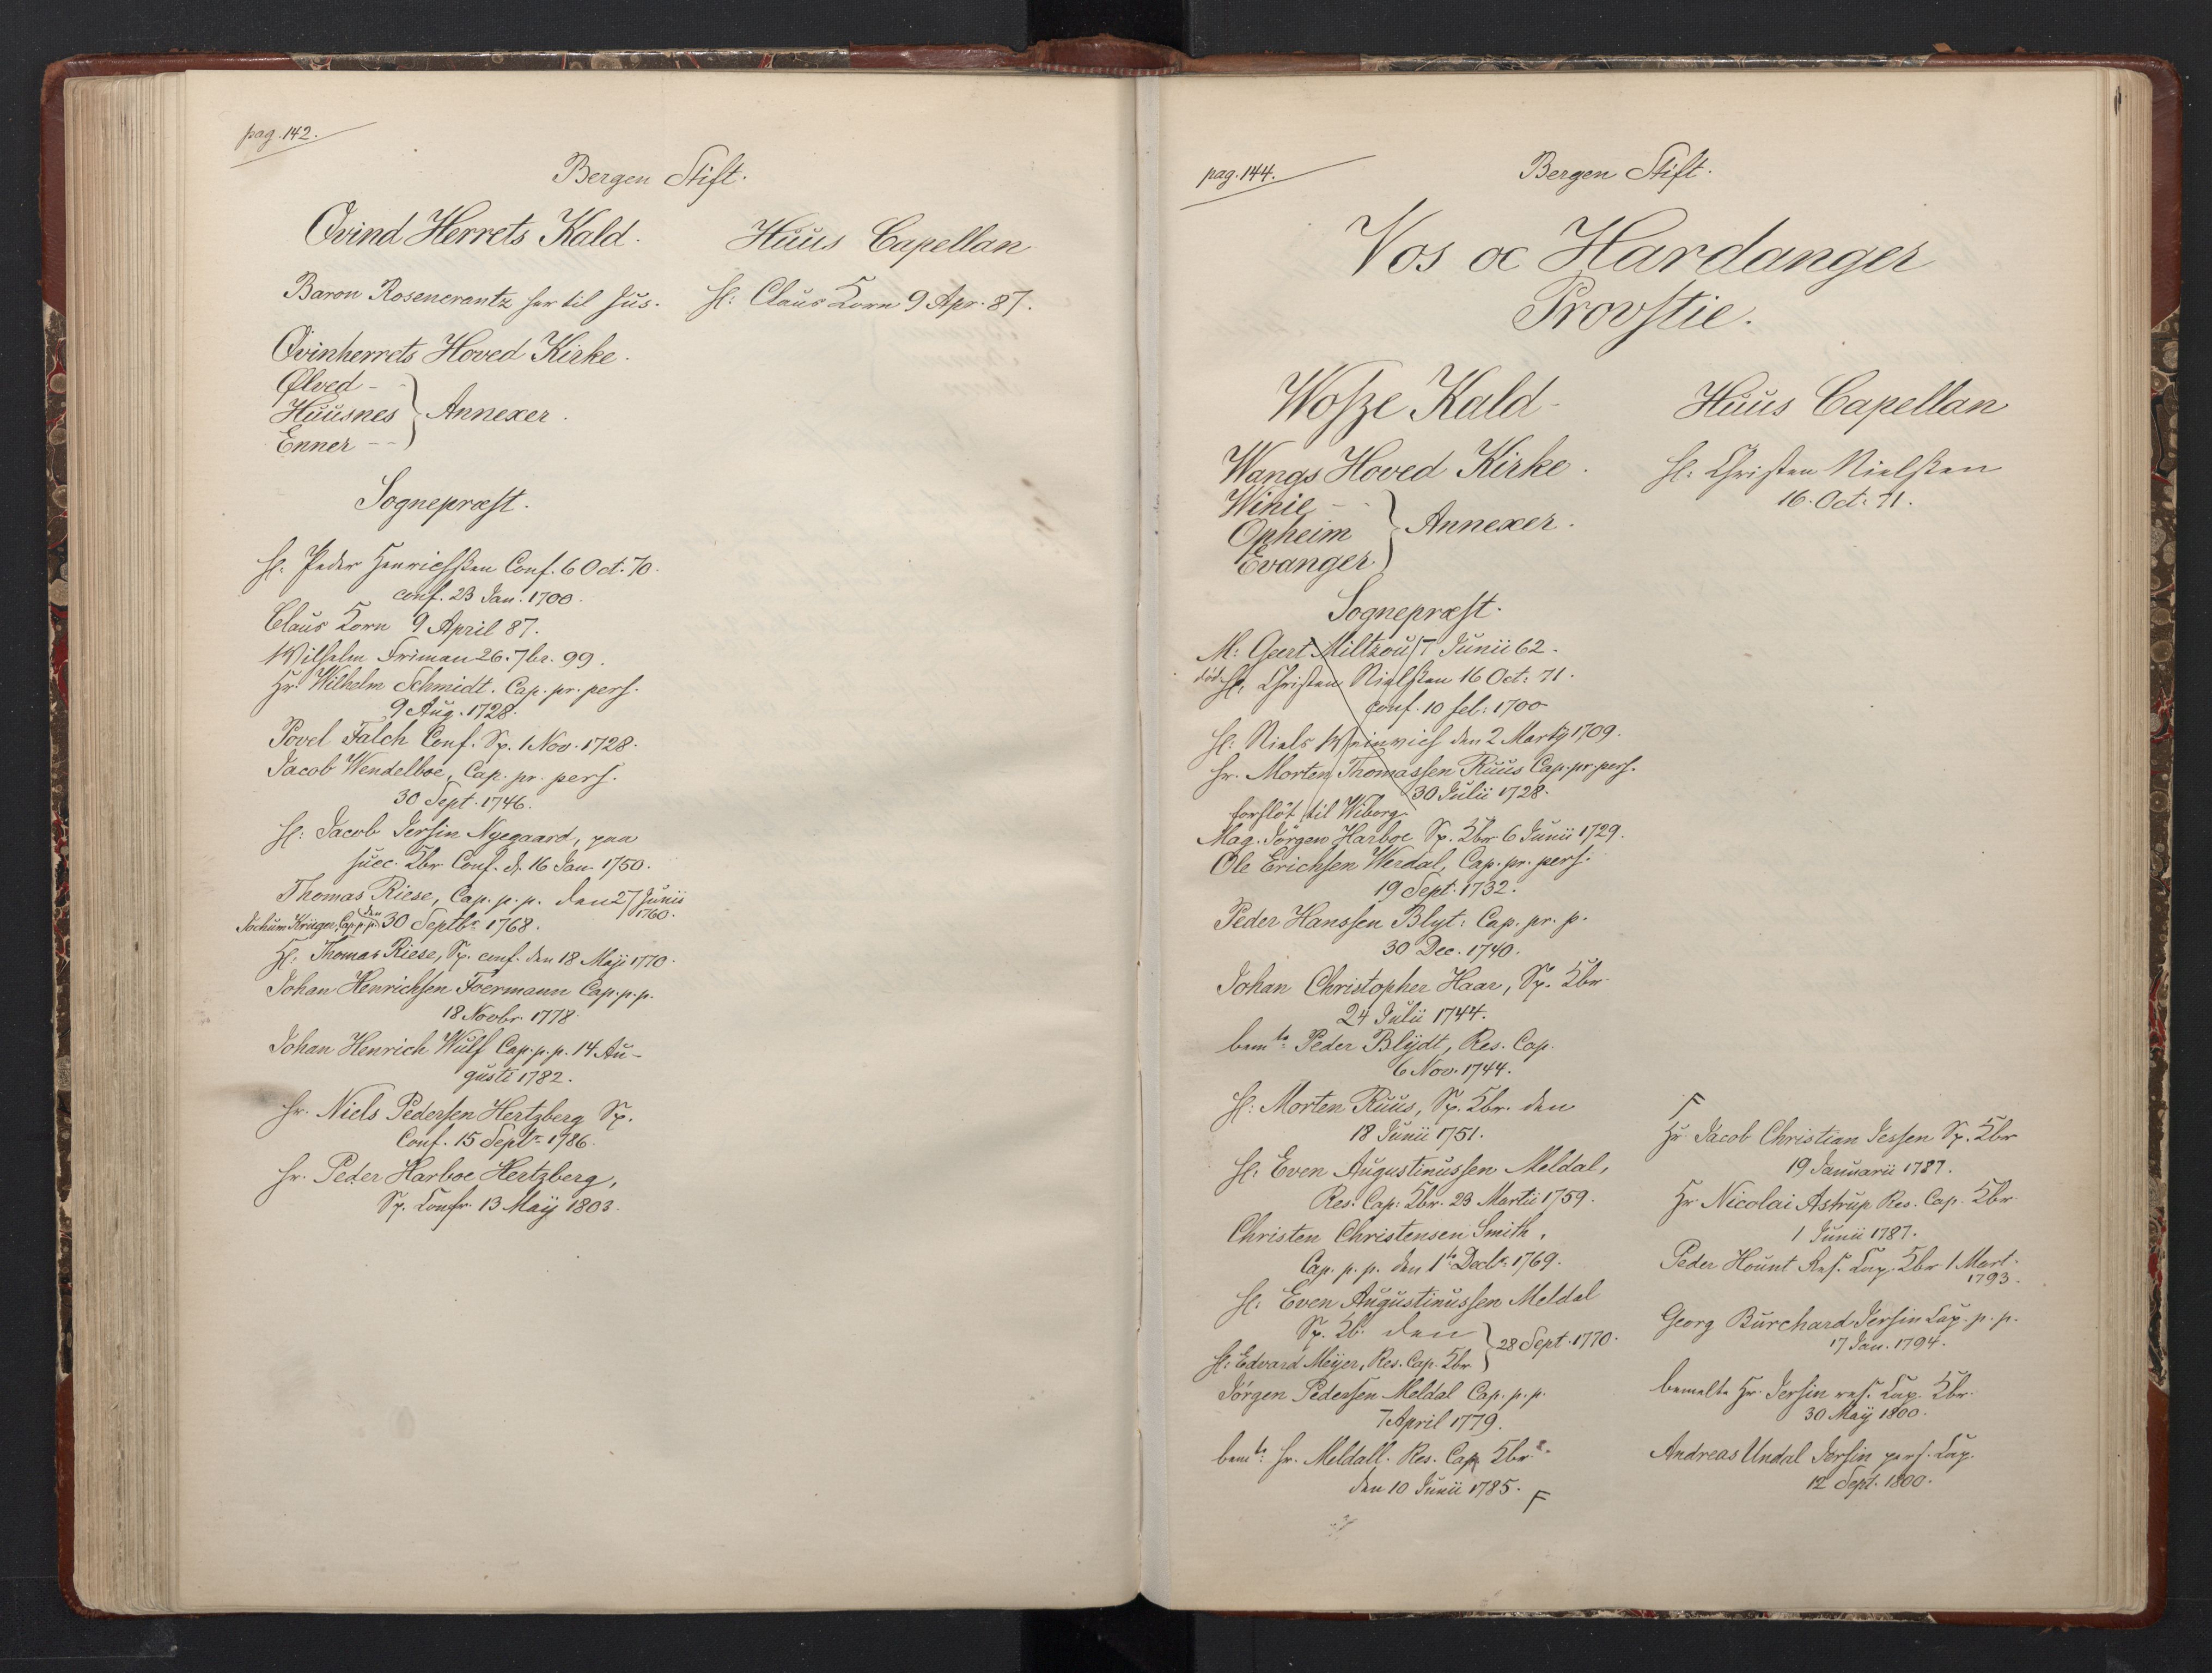 pag. 142.
Bergen Stift.
Qvind Herrets Kald.
Baron Rosencrantz her til Jus.
Qvinherrets Hoved Kirke.
Ølved - -
Huusnes } Annexer.
Enner - -
Sognepræst.
H: Peder Henrichssen Conf. 6 Oct. 70.
conf. 23 Jan. 1700.
Claus Korn 9 April 87.
Wilhelm Friman 26. 7br. 99.
Hr. Wilhelm Schmidt. Cap. pr. pers.
9 Aug. 1728.
Povel Falch Conf. Sp. 1 Nov. 1728.
Jacob Wendelboe, Cap. pr. pers.
30 Sept. 1746.
H: Jacob Jersin Nyegaard, paa
succ. Kbr. Conf. d. 16 Jan. 1750.
Thomas Riese, Cap. p. p. den 27 Junii
1760.
Jochum Krüger, Cap. p. p. den 30 Septbr. 1768.
H: Thomas Riese, Sp. conf. den 18 Maji 1770.
Johan Henrichsen Foermann Cap. p. p.
18 Novbr. 1778.
Johan Henrich Wulf Cap. p. p. 14 Au-
gusti 1782.
Hr. Niels Pedersen Hertzberg Sp.
Conf. 15 Septr. 1786.
Hr. Peder Harboe Hertzberg,
Sp. Confr. 13 Maij 1803.
Huus Capellan
H: Claus Korn 9 Apr. 87.
pag. 144.
Bergen Stift.
Vos oc Hardanger
Provstie.
Wosze Kald
Wangs Hoved Kirke.
Winie - -
Opheim } Annexer.
Evanger
Sognepræst.
M: Geert Miltzou 7 Junii 62.
død. H: Christen Nielssen 16 Oct: 71.
conf. 10 feb: 1700
H: Niels Weinwich den 2 Martij 1709.
Hr. Morten Thomassen Ruus Cap. pr. pers.
30 Julii 1728.
forfløt til Wiborg.
Mag. Jørgen Harboe Sp. Kbr. 6 Junii 1729.
Ole Erichsen Werdal, Cap. pr. pers.
19 Sept. 1732.
Peder Hanssen Blyt: Cap. pr. p.
30 Dec. 1740.
Johan Christopher Haar, Sp. Kbr.
24 Julii 1744.
bemte Peder Blÿdt, Res. Cap.
6 Nov. 1744.
H: Morten Ruus, Sp. Kbr. den
18 Junii 1751.
H: Even Augustinussen Meldal,
Res: Cap: Kbr. 23 Martii 1759.
Christen Christensen Smith,
Cap. p. p. den 1te Decbr. 1769.
H: Even Augustinussen Meldal
Sp. Kb. den } 28 Sept. 1770.
H: Edvard Meÿer, Res. Cap. Kbr.
Jörgen Pedersen Meldal Cap. p. p.
7 April 1779.
bemte Hr. Meldall. Res. Cap Kbr.
den 10 Junii 1785. F
Huus Capellan
H: Christen Nielssen
16. Oct: 71.
F
Hr. Jacob Christian Jessen Sp. Kbr.
19 Januarii 1787.
Hr. Nicolai Astrup Res. Cap. Kbr.
1 Junii 1787.
Peder Hount Res. Cap. Kbr. 1 Mart.
1793.
Georg Burchard Jersin Cap. p. p.
17 Jan. 1794.
bemelte Hr. Jersin res. Cap. Kbr.
30 Maij 1800.
Andreas Undal Jersin pers. Cap.
12 Sept. 1800.